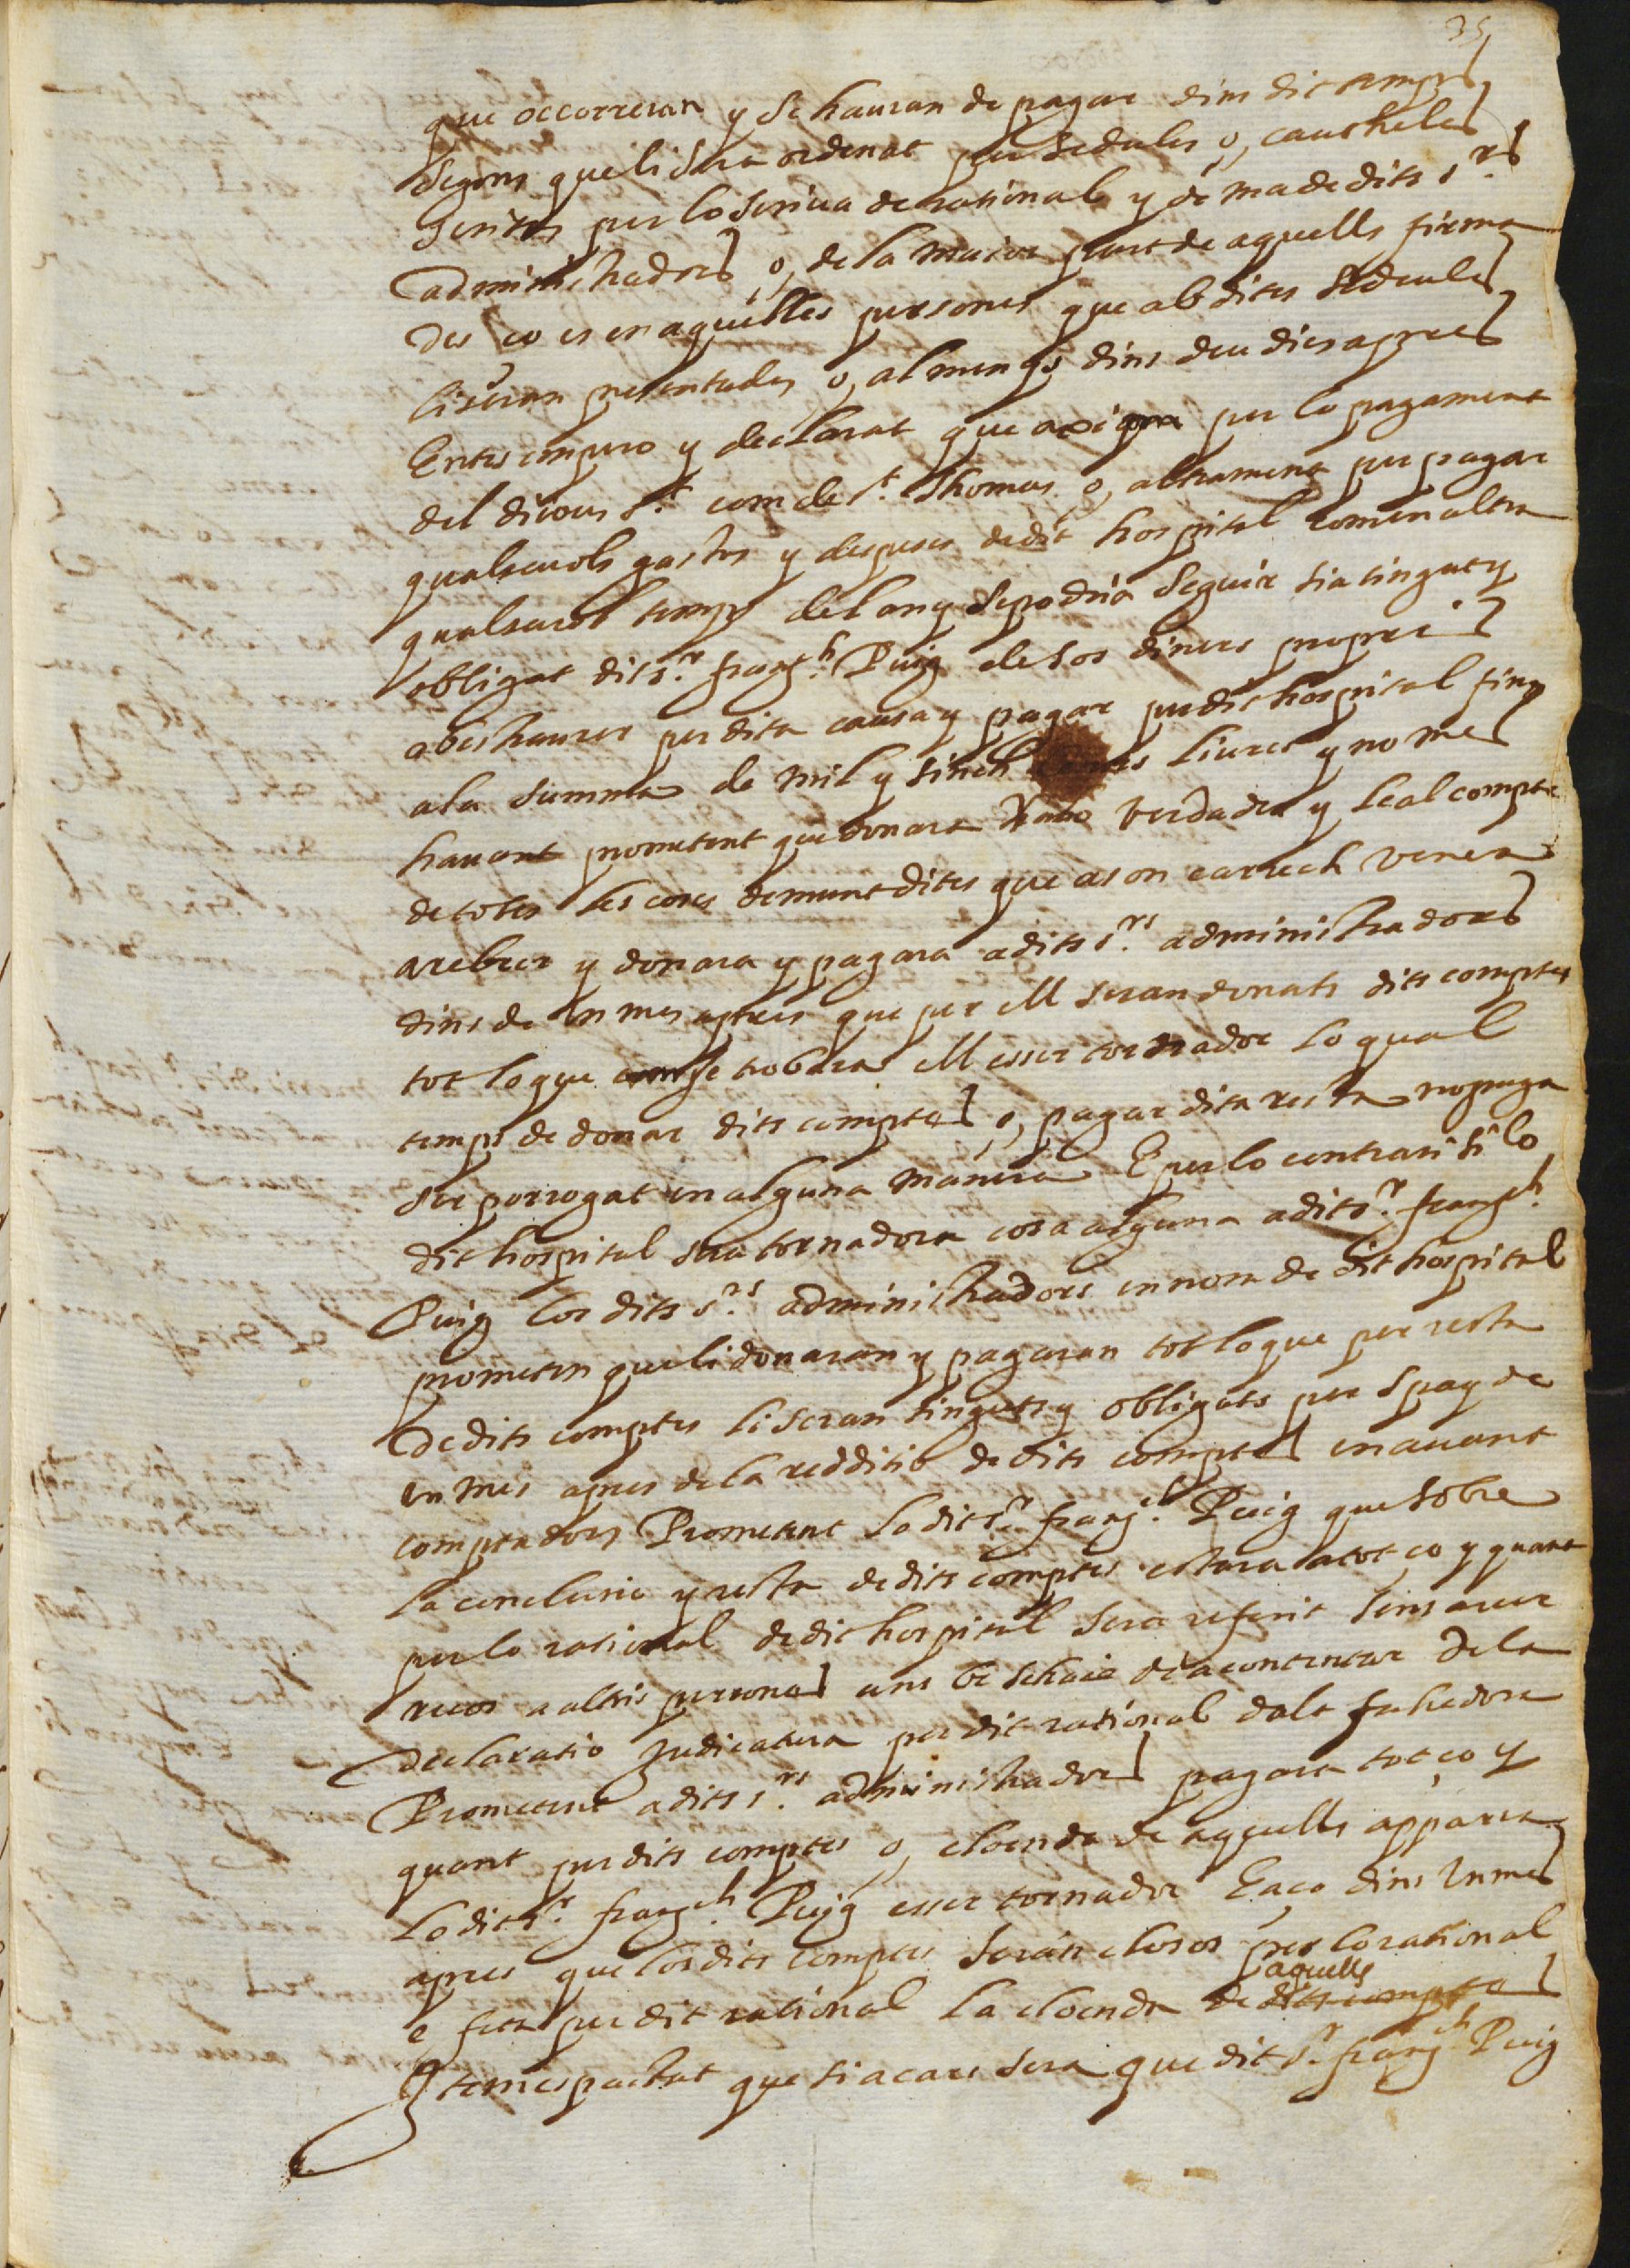 35
que occorreran y se hauran de pagar dins dit temps
segons que li sera ordenat per sedules o, cautheles
scrites per lo scriua de rational y de ma de dits s.rs
administradors o, de la maior part de aquells firma
des ço es en aquelles persones que ab dites sedules
li seran presentades o, al menys dins deu dies apres
Entes empero y declarat que axi per lo pagament
del dijous s.t com de s.t Thomas o, altrament per pagar
qualseuols gastos y despeses de dit hospital com en altra
qualseuol temps del any se podria seguir sia tingut y
obligat dit s.r franç.h Puig de sos diners propris
abestraurer per dita causa y pagar per dit hospital fins
a la summa de mil y sinch liures y no mes
hauant prometent que donara bo verdader y leal compte
de totes les coses demunt dites que a son carrech venen
a rebrer y donara y pagara a dits s.rs administradors
dins de un mes apres que per ell seran donats dits comptes
tot lo que se trobara ell esser tornador lo qual
temps de donar dits comptes o, pagar dita resta no puga
ser porrogat en alguna manera E per lo contrari si lo
dit hospital sera tornador en cosa alguna a dit s.r franç.h
Puig los dits s.rs administradors en nom de dit hospital
prometen que li donaran y pagaran tot lo que per resta
de dits comptes li seran tinguts y obligats per spay de
un mes apres de la redditio de dits comptes en auant
comptadors Prometent lo dit s.r franç.h Puig que sobre
la conclusio y resta de dits comptes estara a tot ço y quant
per lo rational de dit hospital sera referit sens auer
recos a altres persones ans be se haie de acontentar de la
declaratio judicatura per dit rational dalt fahedora
Prometent a dits s.rs administradors pagara tot ço y
quant per dits comptes o, cloenda de aquells apparra
lo dit s.r franç.h Puig esser tornador E aço dins un mes
apres que los dits comptes seran closos per lo rational
e feta per dit rational la cloenda de dits comptes aquells
Item es pactat que si a cars sera que dit s.r franç.h Puig